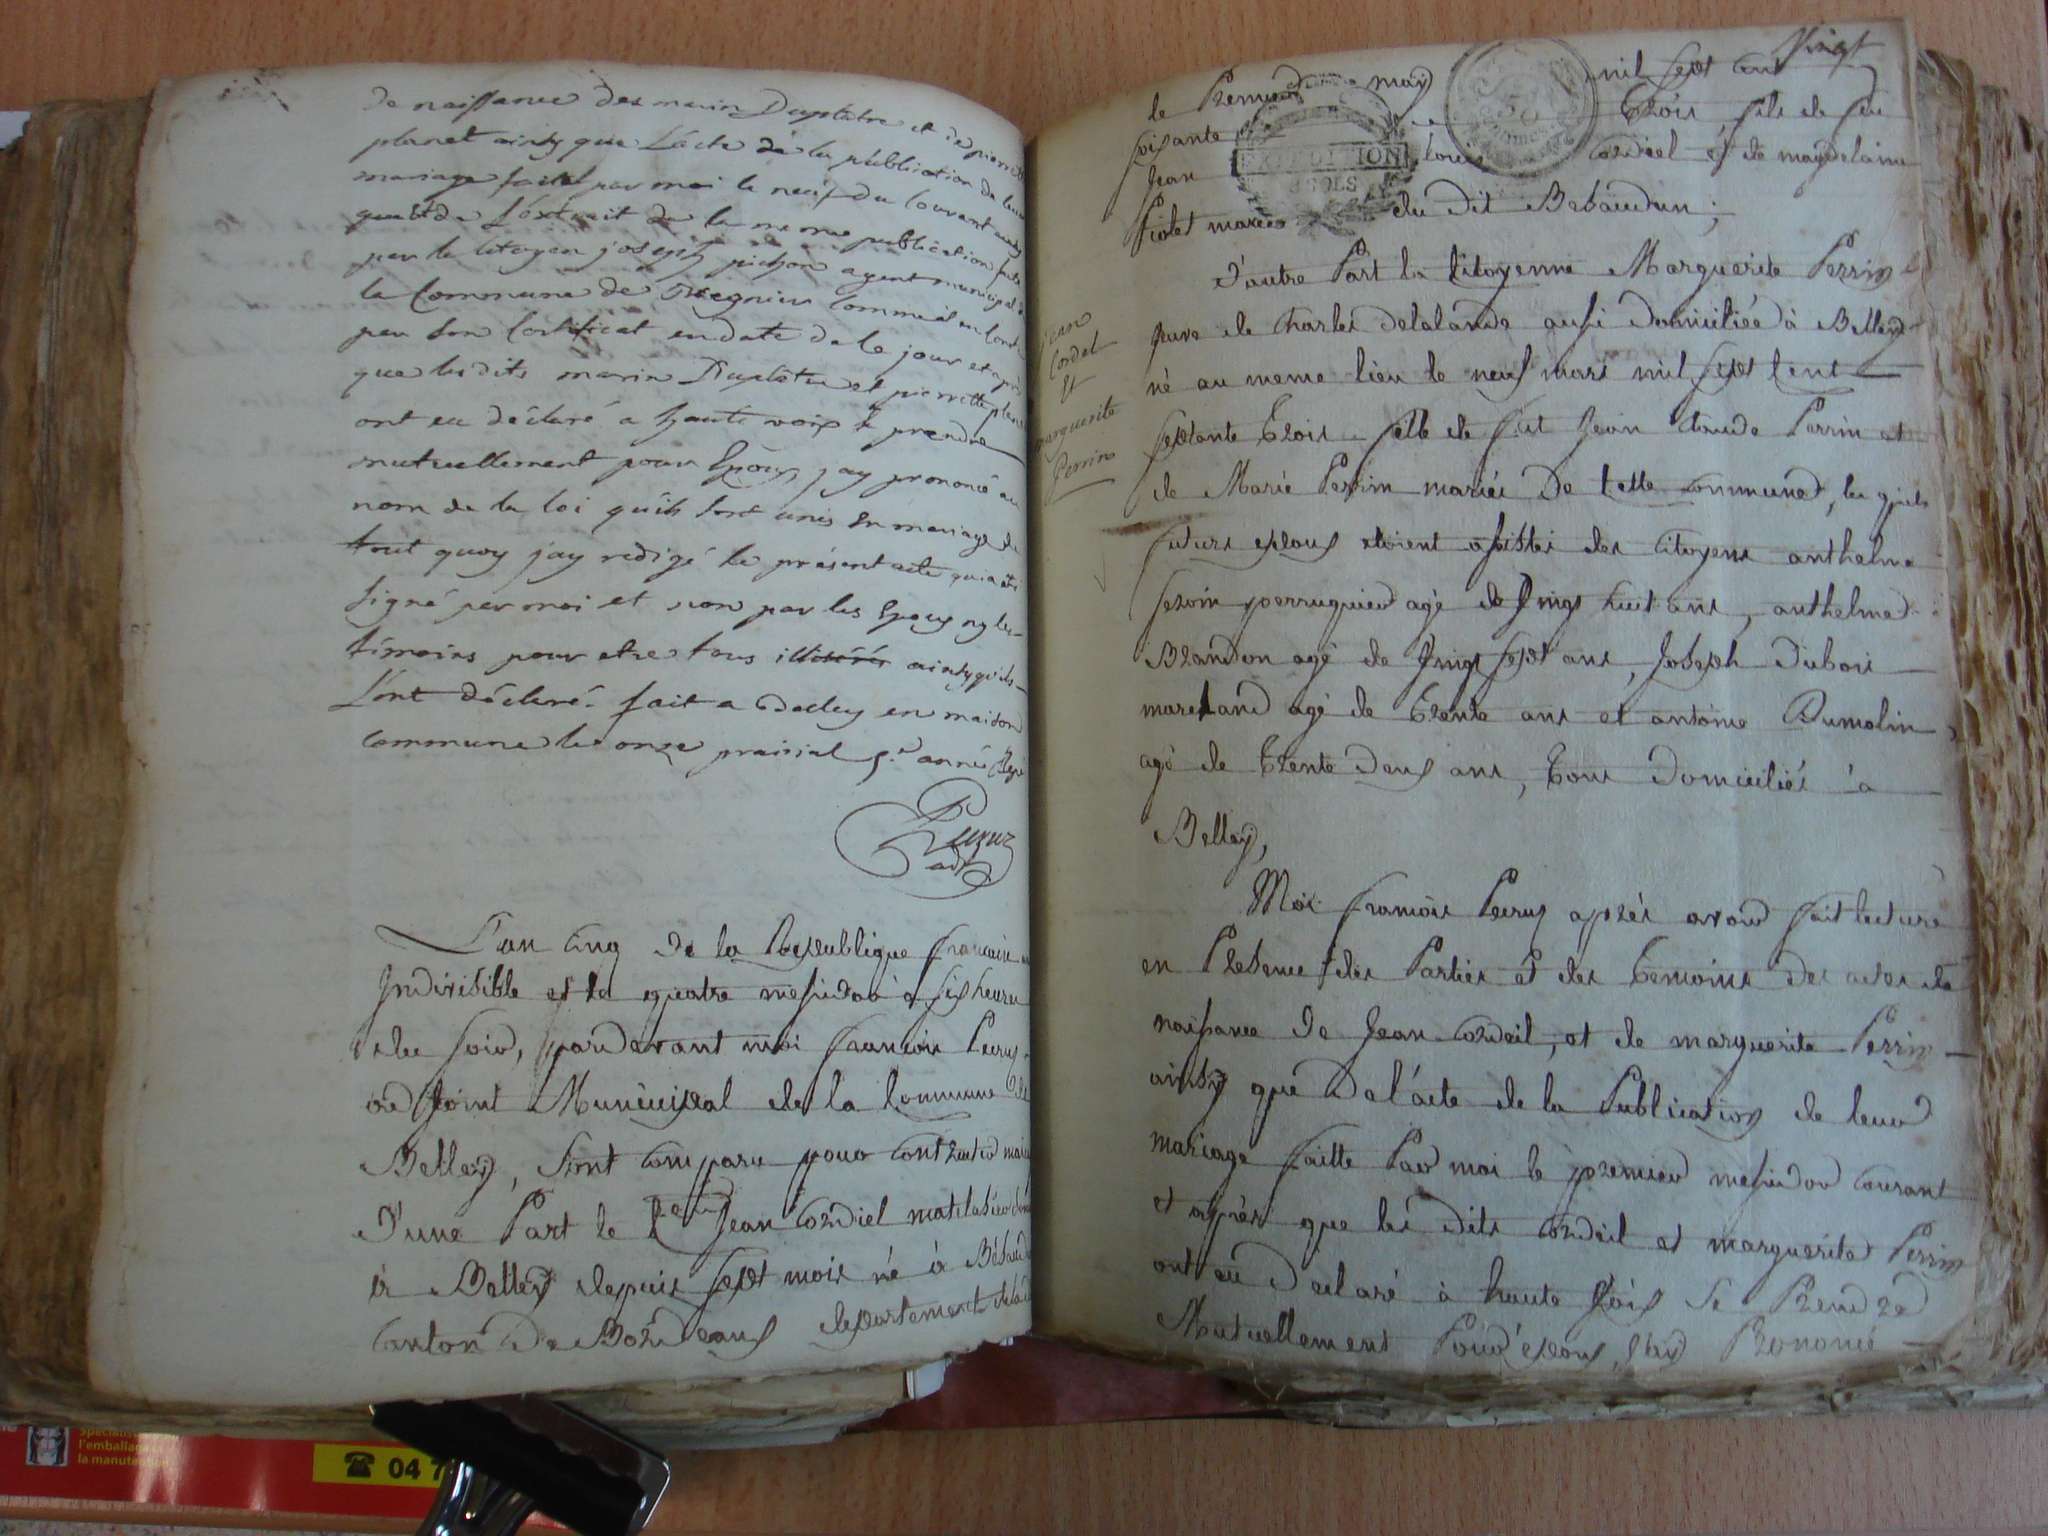 de naissance des marin Duplatre et de pierrette
planet ainsy que L'acte de la publication de leur
mariage fait par moi le neuf du Courant ainsy
que de L'éxtrait de la meme publication faite
par le Citoyen joseph pichon agent municipal de
la Commune de
par son Certificat en date de le jour et après
que lesdits marin Duplatre et pierrette planet
ont eu déclaré a haute voix se prendre
mutuellement pour Epoux j'ay prononcé au
nom de la loi qu'ils sont unis en mariage de
tout quoy j'ay redigé le présent acte qui a été
signé par moi et non par les Epoux ny les
témoins pour etre tous illitérés ainsy qu'ils
L'ont déclaré. fait a Belley en maison
commune le onze prairial 5.e année
Peyzuz
adt
L'an Cinq de la Republique francaise
Indivisible et le quatre messidor a six heures
du soir, pardevant moi francois
adjoint Municipal de la Commune de
Belley, sont comparu pour contracter mariage
D'une Part le Cen Jean Cordiel matelasier
à Belley depuis sept mois né à
Canton De Bordeaux departement de la
Vingt
le Premier may mil sept cent
soixante trois fils de feu
Jean Louis Cordiel et de magdelaine
Piolet mariés du dit Bebaudun;
D'autre Part la Citoyenne Marguerite Perrin
veuve de Charles delalande aussi domiciliée à Belley
né au meme lieu le neuf mars mil sept Cent
septante trois fille de fut Jean Claude Perrin et
de Marie Perrin mariés De Cette Commune, les quels
futurs epoux etoient assistés des Citoyens anthelme
perruquier agé de Vingt huit ans, anthelme
Brandon agé de Vingt sept ans, Joseph Dubois
marchand agé de trente ans et antoine Dumolin
agé de trente deux ans, tous Domiciliés à
Belley,
Jean
Cordel
Et
marguerite
Perrin
EXPEDITION
SOLS
Moi francois après avoir fait lecture
en Presence des Parties et des temoins des actes de
naissance de Jean Cordeil, et de marguerite Perrin
ainsy que De l'acte de la Publication de leur
mariage faitte Par moi le premier messidor Courant
et après que les dits Cordeil et marguerite Perrin
ont eu Declaré à haute Voix se Prendre
Mutuellement Pour epoux, J'ay Prononcé
Spécialis
l'emballage
la manutention
04 7